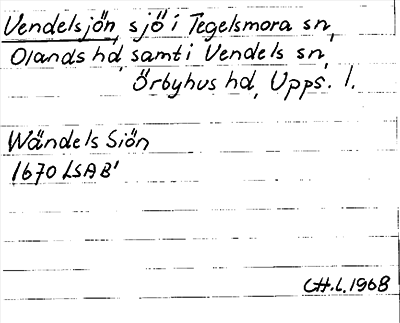 Vendelsjön, sjö i Tegelsmora sn,
Olands hd, samt i Vendels sn,
Örbyhus hd, Upps. l.
Wändels Siön
1670 LSAB'
CH.L. 1968